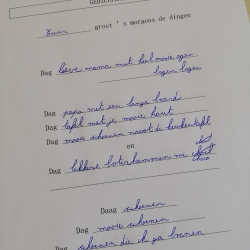 GEDICHT
Luna groet 's morgens de dingen
Dag lieve mama met hel mooie ogen
Dag papa met een lange baard
Dag tafel met je mooie hout
Dag mooie schoenen naast de keukentafel
en
Dag lekkere boterhammen me choco
Daag schoenen
Dag mooie schoenen
Dag schoenen die ik ga